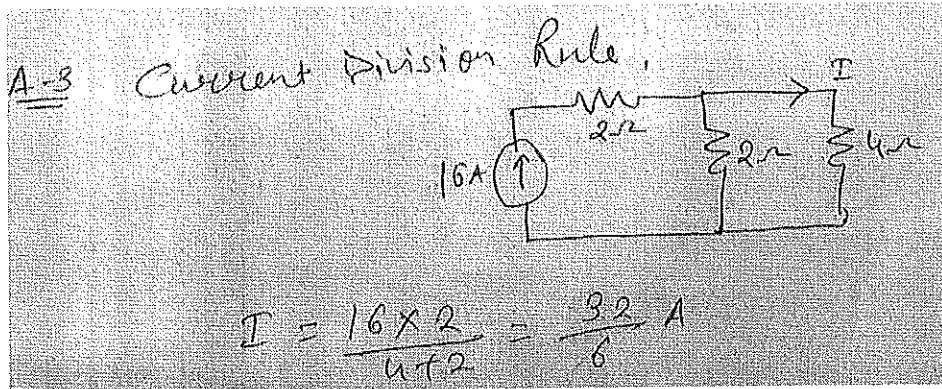 A-3 Current Division Rule.
I
2Ω
16A
2Ω
4Ω
I = 16×2 / 4+2 = 32 / 6 A